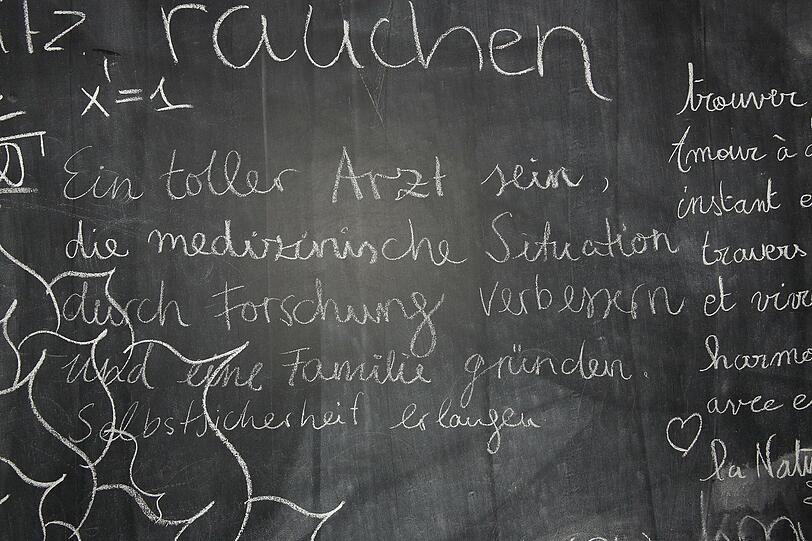 tz rauchen
x = 1
Ein toller Arzt sein,
die medizinische Situation
durch Forschung verbessern
und eine Familie gründen.
Selbstsicherheit erlangen
trouver
Amour à
instant
travers
et vivr
harmo
avec e
la Natu